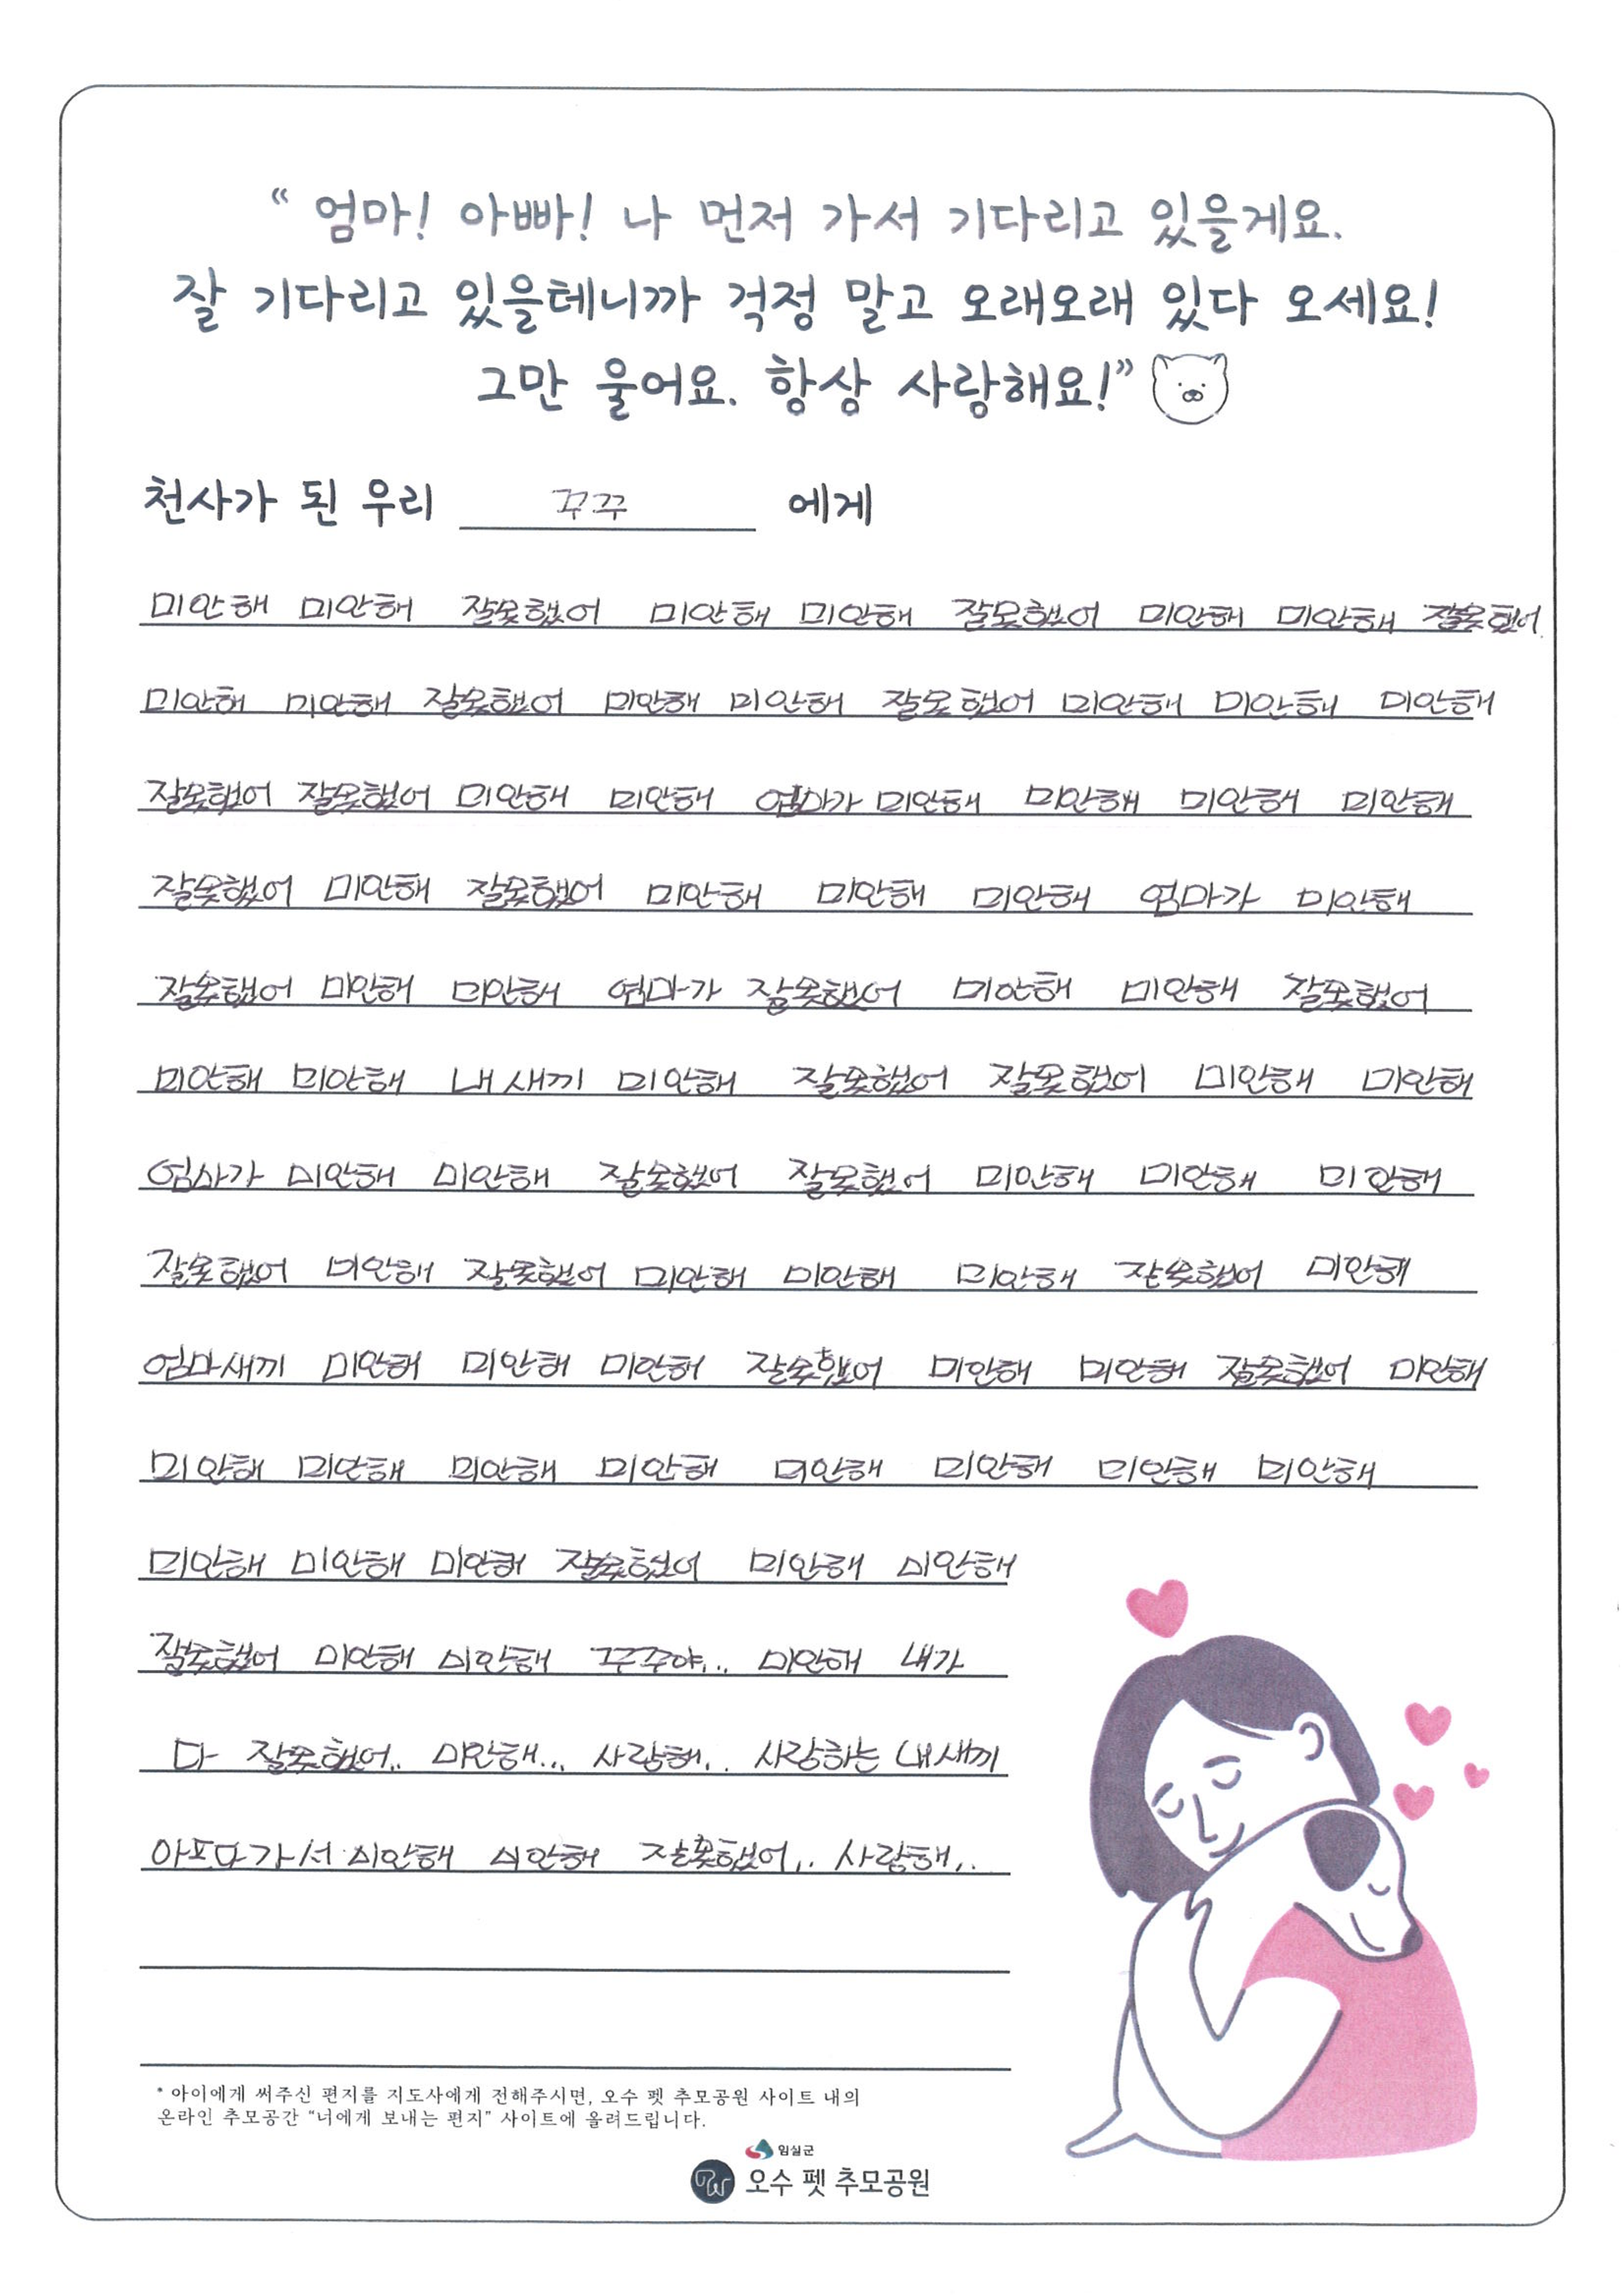 “ 엄마! 아빠! 나 먼저 가서 기다리고 있을게요.
잘 기다리고 있을테니까 걱정 말고 오래오래 있다 오세요!
그만 울어요. 항상 사랑해요!”
천사가 된 우리 꾸꾸 에게
미안해 미안해 잘못했어 미안해 미안해 잘못했어 미안해 미안해 잘못했어.
미안해 미안해 잘못했어 미안해 미안해 잘못했어 미안해 미안해 미안해
잘못했어 잘못했어 미안해 미안해 엄마가 미안해 미안해 미안해 미안해
잘못했어 미안해 잘못했어 미안해 미안해 미안해 엄마가 미안해
잘못했어 미안해 미안해 엄마가 잘못했어 미안해 미안해 잘못했어
미안해 미안해 내새끼 미안해 잘못했어 잘못했어 미안해 미안해
엄마가 미안해 미안해 잘못했어 잘못했어 미안해 미안해 미안해
잘못했어 미안해 잘못했어 미안해 미안해 미안해 잘못했어 미안해
엄마새끼 미안해 미안해 미안해 잘못했어 미안해 미안해 잘못했어 미안해
미안해 미안해 미안해 미안해 미안해 미안해 미안해 미안해
미안해 미안해 미안해 잘못했어 미안해 미안해
잘못했어 미안해 미안해 꾸꾸야... 미안해 내가
다 잘못했어.. 미안해... 사랑해.. 사랑하는 내새끼
아프다가서 미안해 미안해 잘못했어.. 사랑해..
* 아이에게 써주신 편지를 지도사에게 전해주시면, 오수 펫 추모공원 사이트 내의
온라인 추모공간 “너에게 보내는 편지” 사이트에 올려드립니다.
임실군
PW 오수 펫 추모공원